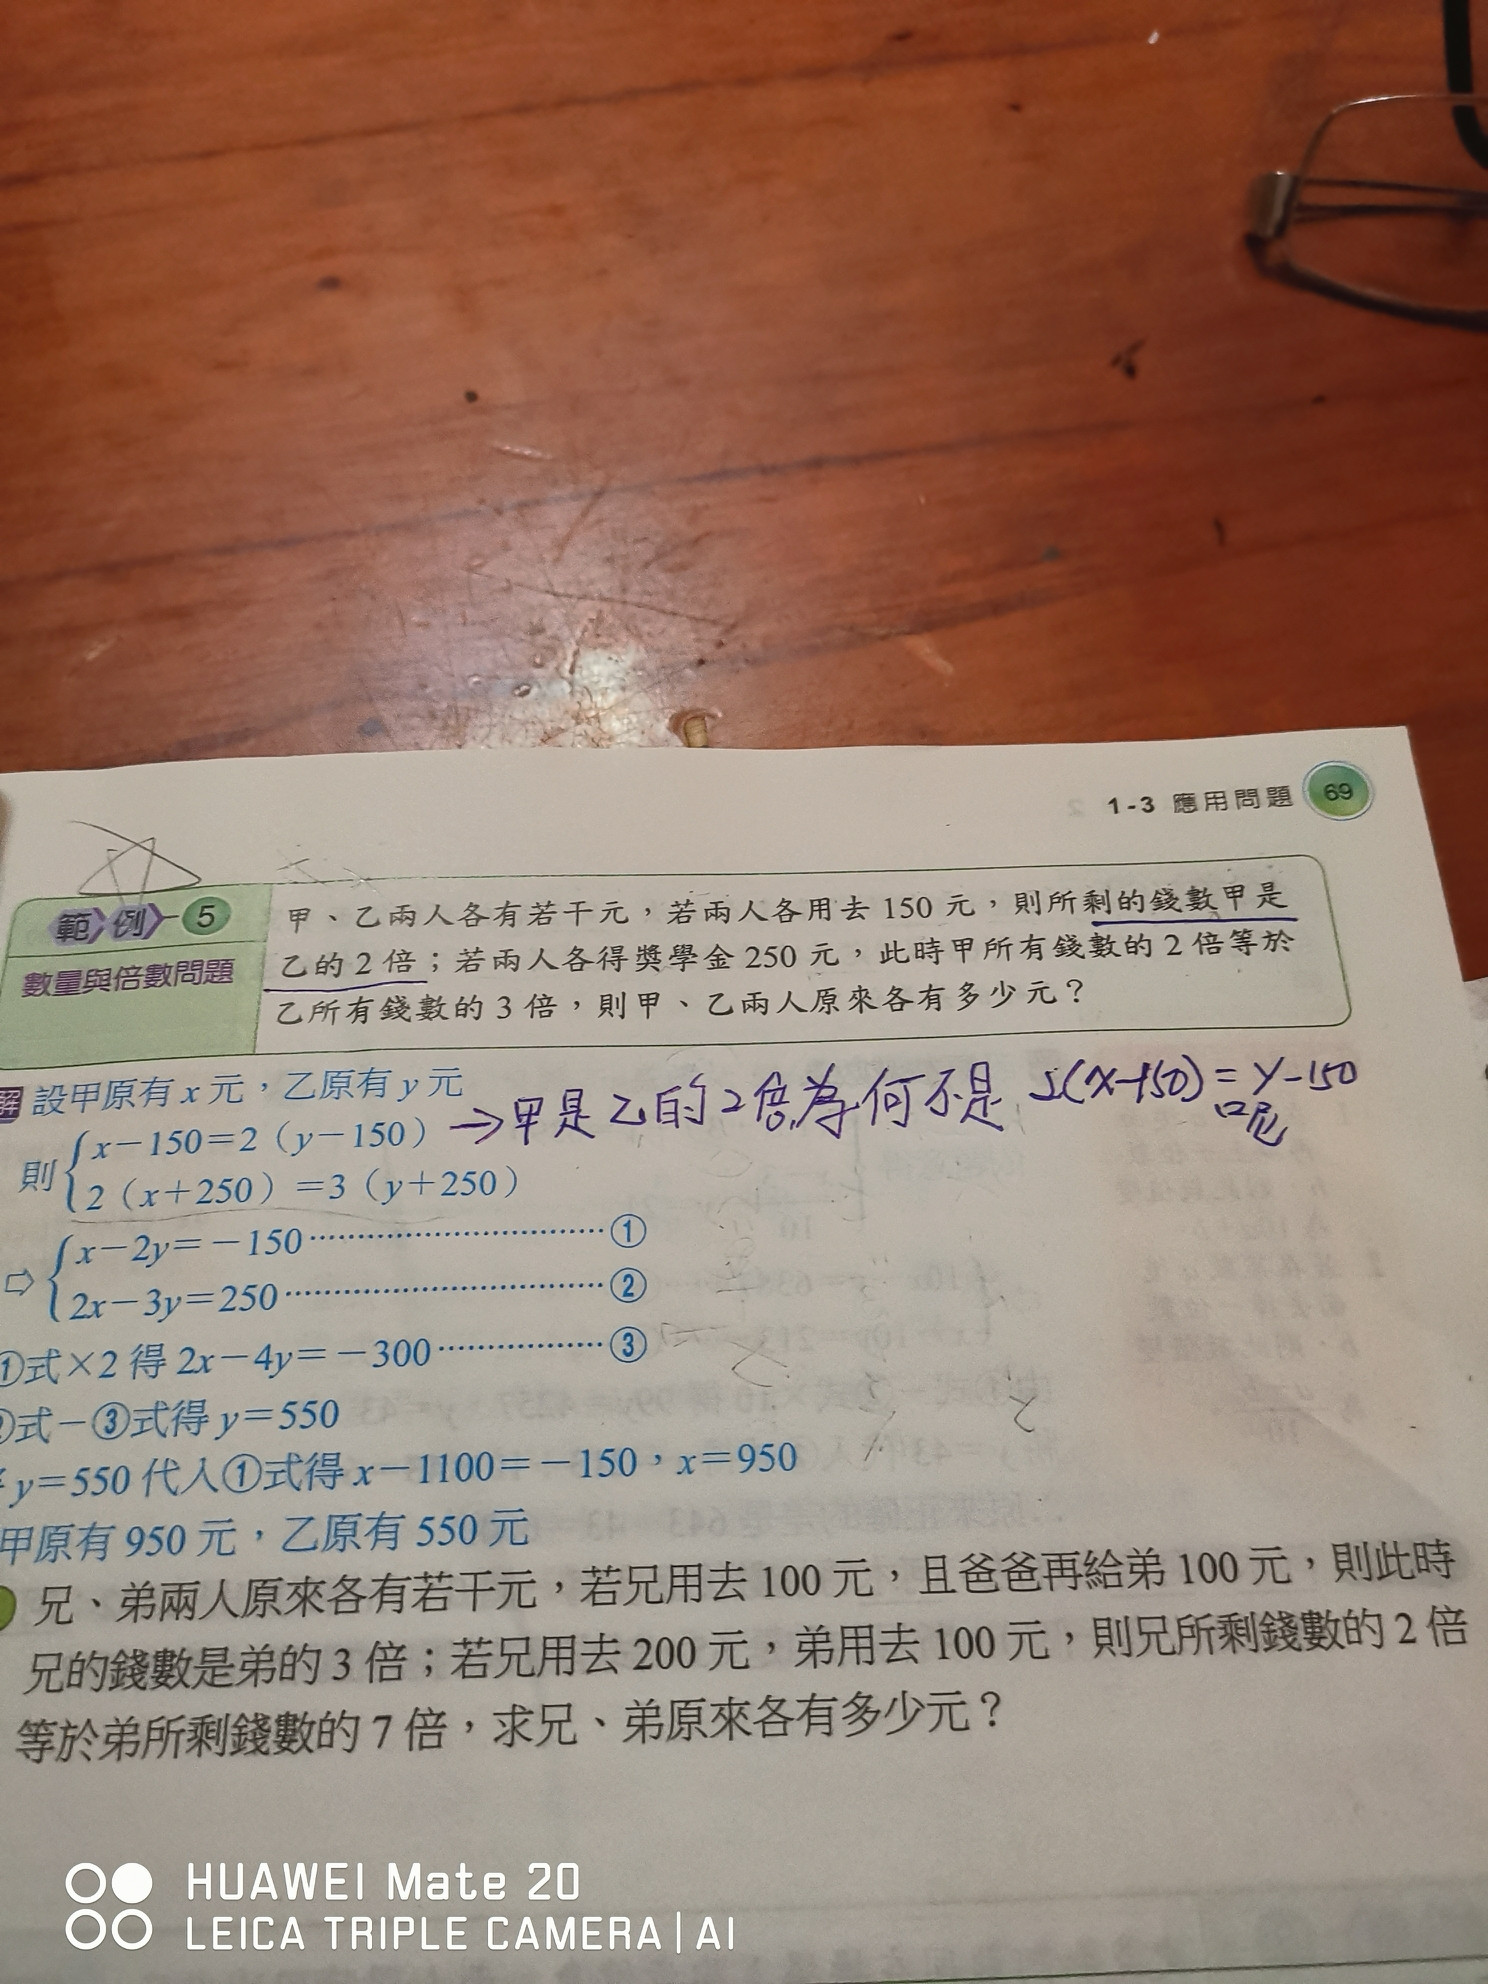 1-3 應用問題 69
範例 5
數量與倍數問題
甲、乙兩人各有若干元，若兩人各用去 150 元，則所剩的錢數甲是
乙的 2 倍；若兩人各得獎學金 250 元，此時甲所有錢數的 2 倍等於
乙所有錢數的 3 倍，則甲、乙兩人原來各有多少元？
解 設甲原有 x 元，乙原有 y 元
→甲是乙的2倍,為何不是 2(x-150)=y-150
呢
則 x－150＝2（y－150）
2（x＋250）＝3（y＋250）
⇨ x－2y＝－150 ⋯⋯ ①
2x－3y＝250 ⋯⋯ ②
①式×2 得 2x－4y＝－300 ⋯⋯ ③
②式－③式得 y＝550
y＝550 代入①式得 x－1100＝－150，x＝950
甲原有 950 元，乙原有 550 元
兄、弟兩人原來各有若干元，若兄用去 100 元，且爸爸再給弟 100 元，則此時
兄的錢數是弟的 3 倍；若兄用去 200 元，弟用去 100 元，則兄所剩錢數的 2 倍
等於弟所剩錢數的 7 倍，求兄、弟原來各有多少元？
HUAWEI Mate 20
LEICA TRIPLE CAMERA | AI